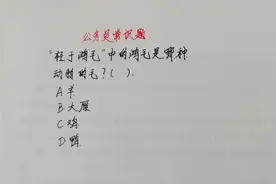 公务员常识题
“轻于鸿毛”中的鸿毛是哪种
动物的毛?( ).
A 羊
B 大雁
C 鸡
D 鸭